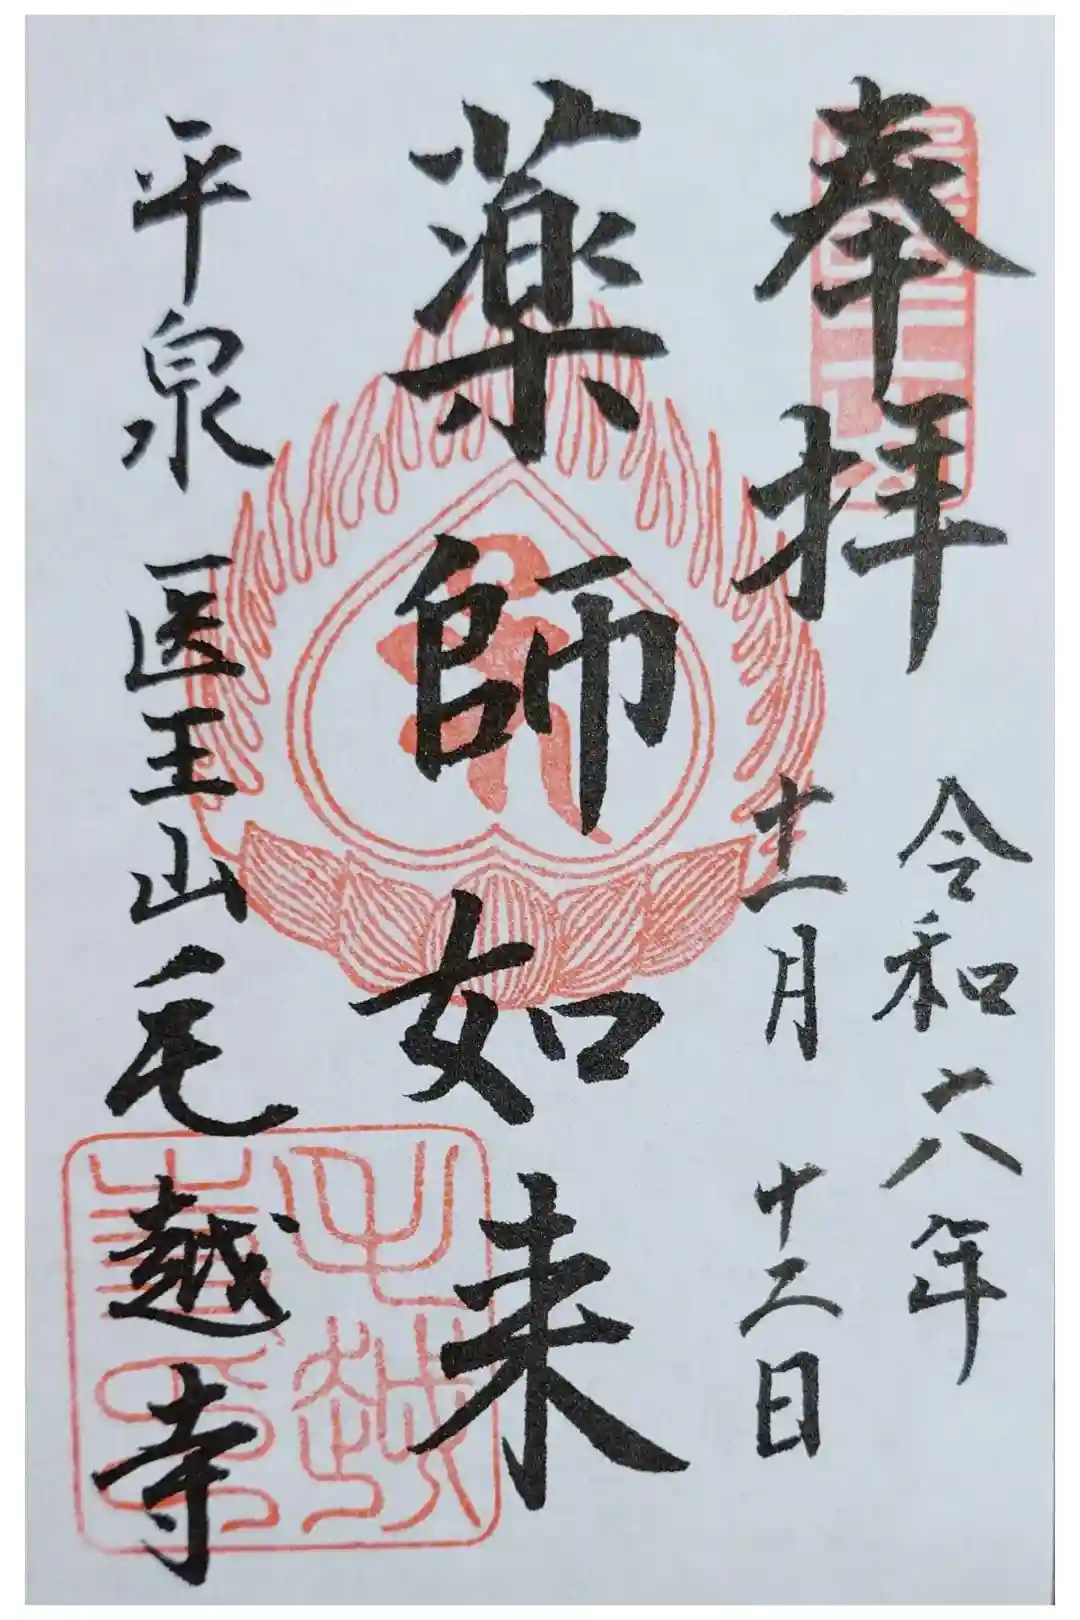 奉拝
令和六年
十一月十二日
薬師如来
平泉 医王山毛越寺